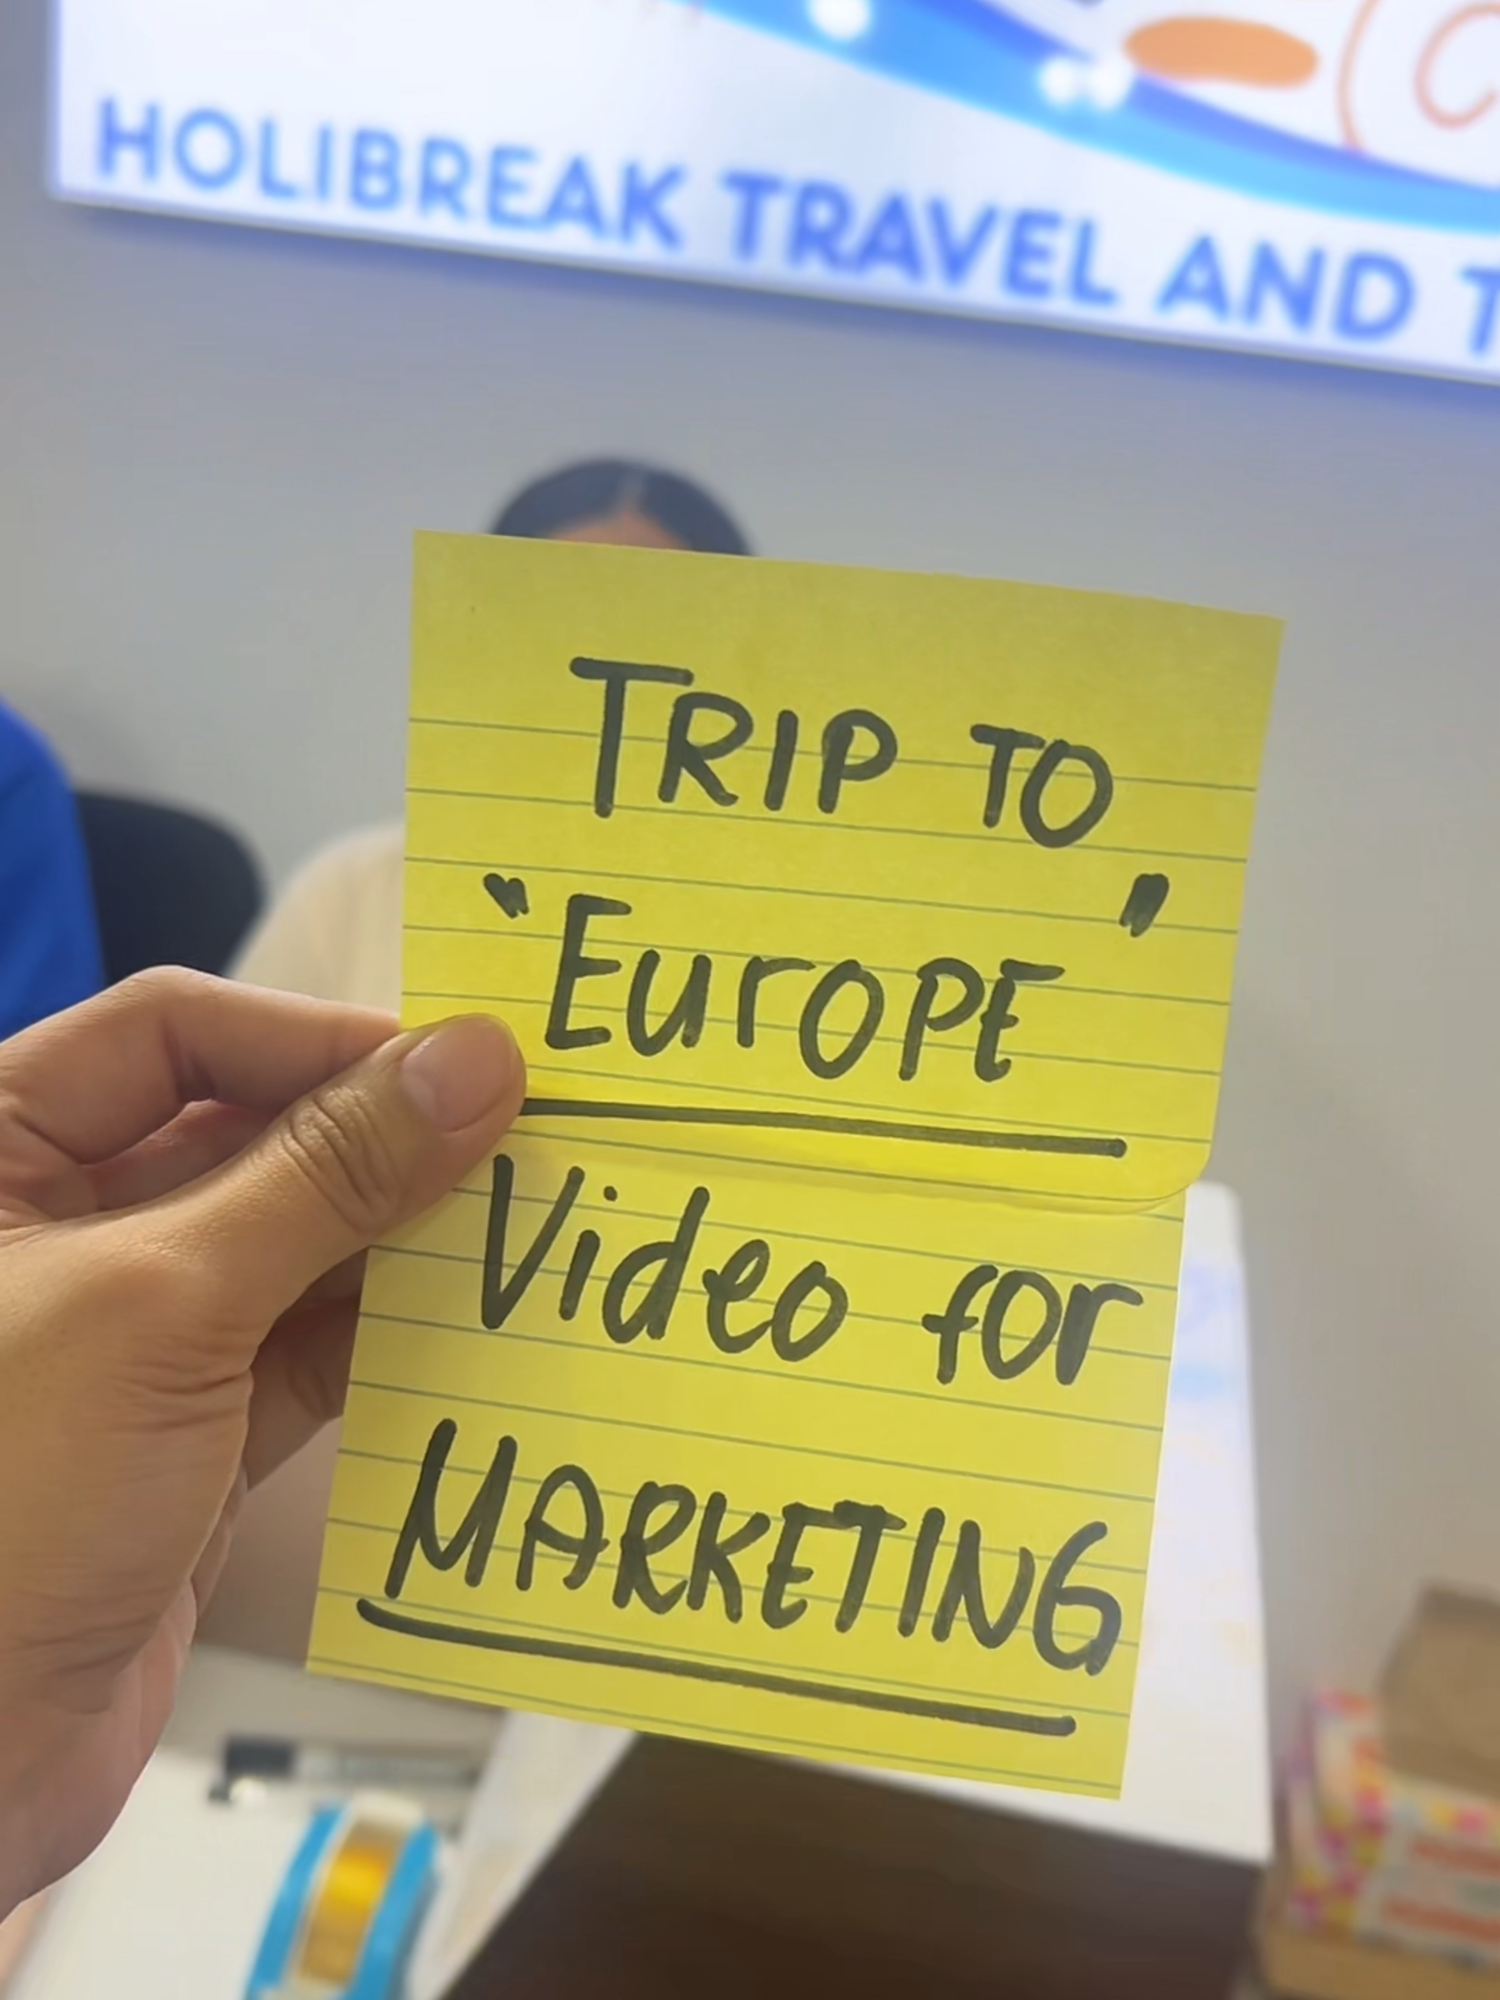 HOLIBREAK TRAVEL AND T
TRIP TO
"EUrOPE"
Video for
MARKETING